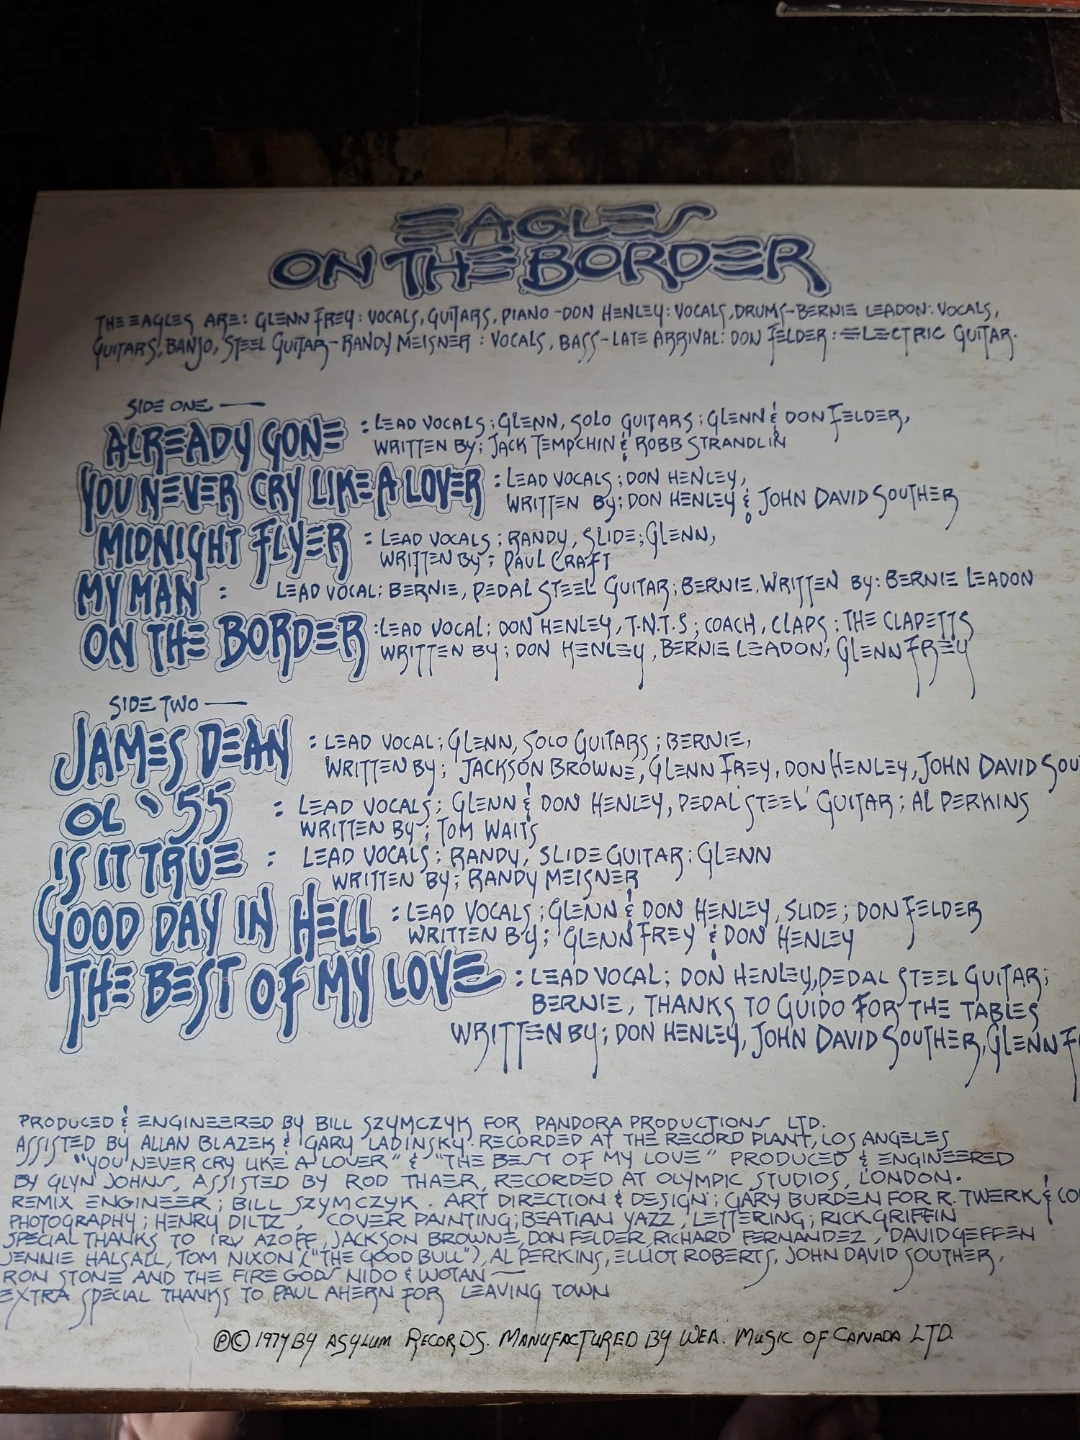 EAGLES
ON THE BORDER
THE EAGLES ARE: GLENN FREY: VOCALS, GUITARS, PIANO - DON HENLEY: VOCALS, DRUMS - BERNIE LEADON: VOCALS,
GUITARS, BANJO, STEEL GUITAR - RANDY MEISNER: VOCALS, BASS - LATE ARRIVAL: DON FELDER: ELECTRIC GUITAR.
SIDE ONE —
ALREADY GONE : LEAD VOCALS; GLENN, SOLO GUITARS; GLENN & DON FELDER,
WRITTEN BY; JACK TEMPCHIN & ROBB STRANDLIN
YOU NEVER CRY LIKE A LOVER : LEAD VOCALS; DON HENLEY,
WRITTEN BY; DON HENLEY & JOHN DAVID SOUTHER
MIDNIGHT FLYER : LEAD VOCALS; RANDY, SLIDE; GLENN,
WRITTEN BY; PAUL CRAFT
MY MAN : LEAD VOCAL; BERNIE, PEDAL STEEL GUITAR; BERNIE. WRITTEN BY: BERNIE LEADON
ON THE BORDER : LEAD VOCAL; DON HENLEY, T.N.T.S; COACH, CLAPS; THE CLAPETTS
WRITTEN BY; DON HENLEY, BERNIE LEADON, GLENN FREY
SIDE TWO —
JAMES DEAN : LEAD VOCAL; GLENN, SOLO GUITARS; BERNIE,
WRITTEN BY; JACKSON BROWNE, GLENN FREY, DON HENLEY, JOHN DAVID SOU
OL '55 : LEAD VOCALS; GLENN & DON HENLEY, PEDAL STEEL GUITAR; AL PERKINS
WRITTEN BY; TOM WAITS
IS IT TRUE : LEAD VOCALS; RANDY, SLIDE GUITAR: GLENN
WRITTEN BY; RANDY MEISNER
GOOD DAY IN HELL : LEAD VOCALS; GLENN & DON HENLEY, SLIDE; DON FELDER
WRITTEN BY; GLENN FREY & DON HENLEY
THE BEST OF MY LOVE : LEAD VOCAL; DON HENLEY, PEDAL STEEL GUITAR;
BERNIE, THANKS TO GUIDO FOR THE TABLES
WRITTEN BY; DON HENLEY, JOHN DAVID SOUTHER, GLENN F
PRODUCED & ENGINEERED BY BILL SZYMCZYK FOR PANDORA PRODUCTIONS LTD.
ASSISTED BY ALLAN BLAZEK & GARY LADINSKY. RECORDED AT THE RECORD PLANT, LOS ANGELES
"YOU NEVER CRY LIKE A LOVER" & "THE BEST OF MY LOVE" PRODUCED & ENGINEERED
BY GLYN JOHNS, ASSISTED BY ROD THAER, RECORDED AT OLYMPIC STUDIOS, LONDON.
REMIX ENGINEER; BILL SZYMCZYK. ART DIRECTION & DESIGN; GARY BURDEN FOR R. TWERK & CO
PHOTOGRAPHY; HENRY DILTZ, COVER PAINTING; BEATIAN YAZZ, LETTERING; RICK GRIFFIN
SPECIAL THANKS TO IRV AZOFF, JACKSON BROWNE, DON FELDER, RICHARD FERNANDEZ, DAVID GEFFEN
JENNIE HALSALL, TOM NIXON ("THE GOOD BULL"), AL PERKINS, ELLIOT ROBERTS, JOHN DAVID SOUTHER,
RON STONE AND THE FIRE GODS NIDO & WOTAN —
EXTRA SPECIAL THANKS TO PAUL AHERN FOR LEAVING TOWN
℗© 1974 BY ASYLUM RECORDS. MANUFACTURED BY WEA. MUSIC OF CANADA LTD.